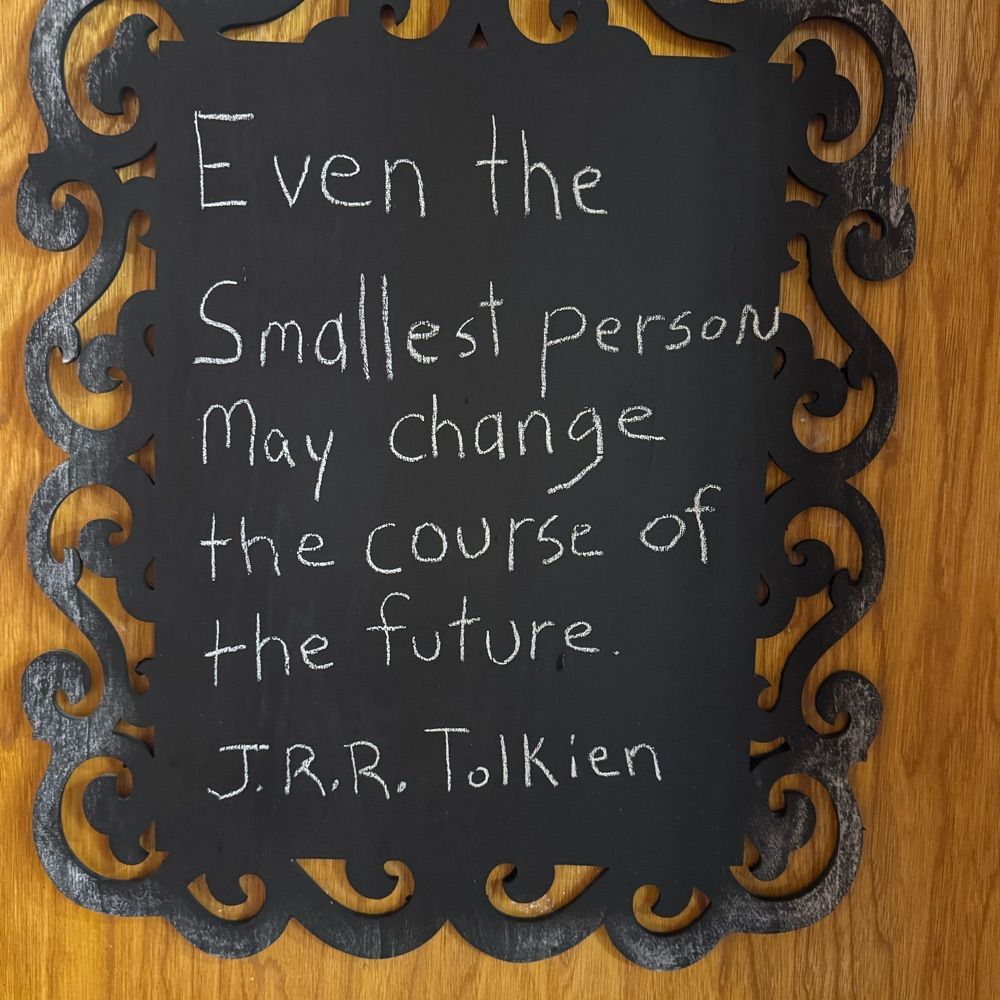 Even the
Smallest person
May change
the course of
the future.
J.R.R. Tolkien